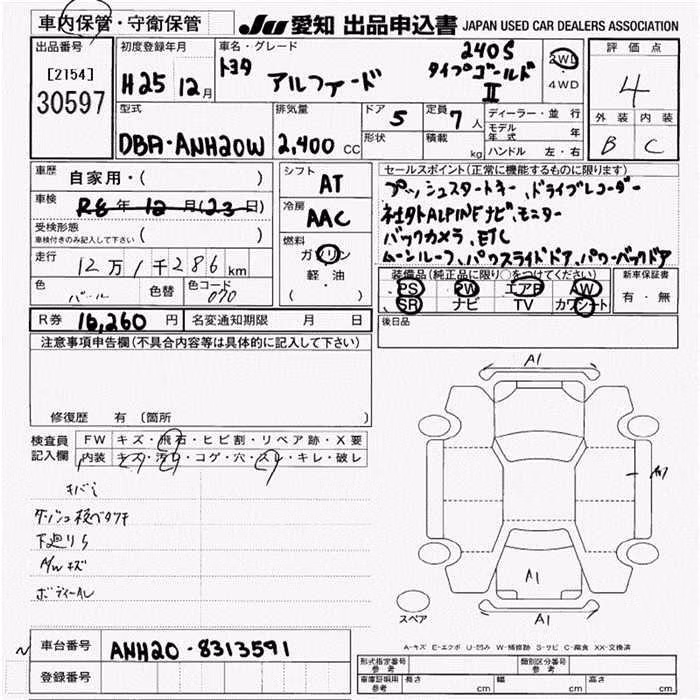 車内保管・守衛保管
JU 愛知 出品申込書 JAPAN USED CAR DEALERS ASSOCIATION
出品番号 初度登録年月 車名・グレード 評価点
[2154]
30597
H25 12月
トヨタ アルファード
240S
タイプゴールド
II
2WD
4WD
4
外装 内装
B C
型式 排気量 ドア 5 定員 7人 ディーラー・並行
DBA・ANH20W 2,400 CC
形状 積載 kg
モデル年式 年
ハンドル 左・右
車歴 自家用・( )
車検 R8年12月(23日)
受検形態 ( )
車検付きのみ記入して下さい
走行 12万1千286km
色 パール 色替 色コード 070
シフト AT
冷房 AAC
燃料 ガソリン
軽・油
( )
セールスポイント(正常に機能するものに限ります)
プッシュスタートキー、ドライブレコーダー
社外ALPINEナビ、モニター
バックカメラ、ETC
ムーンルーフ、パワスライドドア、パワーバックドア
装備品(純正品に限り○をつけてください) 新車保証書
PS PW エアB AW
SR ナビ TV カワシート
有・無
後日品
R券 16,260円 名変通知期限 月 日
注意事項申告欄(不具合内容等は具体的に記入して下さい)
修復歴 有(箇所 )
検査員記入欄 FW キズ・飛石・ヒビ割・リペア跡・X要
内装 キズ・汚レ・コゲ・穴・スレ・キレ・破レ
キバミ
下廻りS
A/Wキズ
A1
A1
A1
スペア
A-キズ E-エクボ U-凹み W-補修跡 S-サビ C-腐食 XX-交換済
車台番号 ANH20-8313591
登録番号
形式指定番号 参考 類別区分番号 参考
車庫証明用 参考 長さ cm 幅 cm 高さ cm